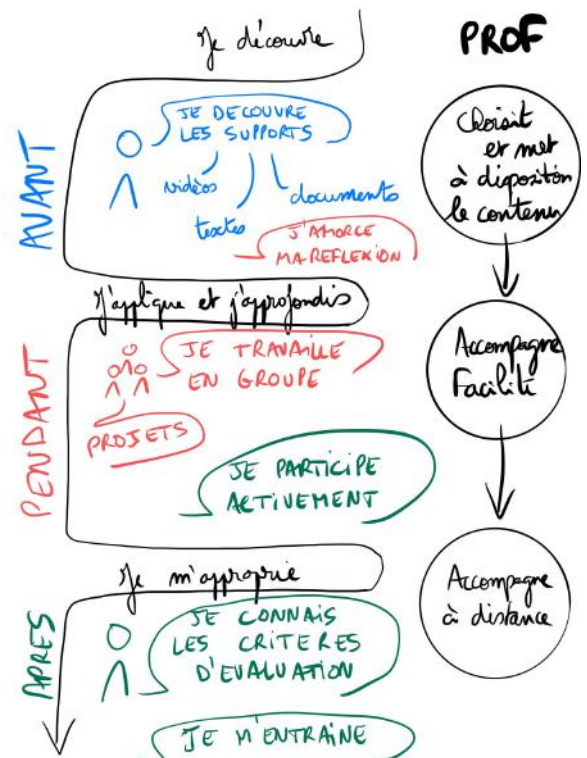 Je découvre
PROF
AVANT
JE DECOUVRE
LES SUPPORTS
vidéos
textes
documents
J'AMORCE
MA REFLEXION
Choisit
et met
à disposition
le contenu
J'applique et j'approfondis
PENDANT
JE TRAVAILLE
EN GROUPE
PROJETS
JE PARTICIPE
ACTIVEMENT
Accompagne
Facilite
Je m'approprie
APRES
JE CONNAIS
LES CRITERES
D'EVALUATION
JE M'ENTRAINE
Accompagne
à distance